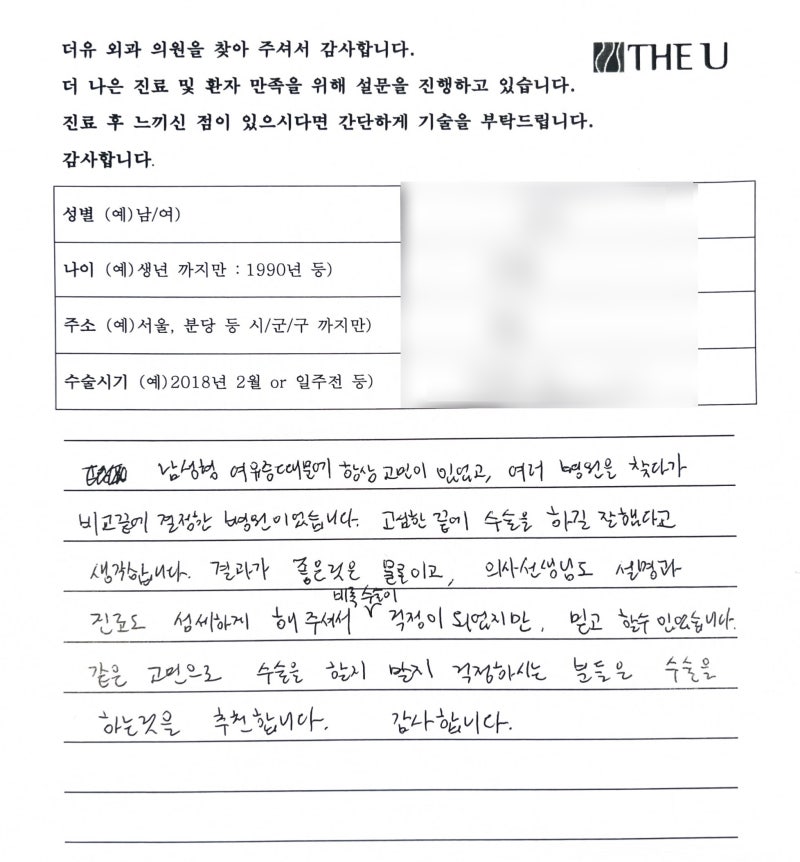 더유 외과 의원을 찾아 주셔서 감사합니다.
THE U
더 나은 진료 및 환자 만족을 위해 설문을 진행하고 있습니다.
진료 후 느끼신 점이 있으시다면 간단하게 기술을 부탁드립니다.
감사합니다.
성별 (예)남/여)
나이 (예)생년 까지만 : 1990년 등)
주소 (예)서울, 분당 등 시/군/구 까지만)
수술시기 (예)2018년 2월 or 일주전 등)
남성형 여유증때문에 항상 고민이 있었고, 여러 병원을 찾다가
비교끝에 결정한 병원이었습니다. 고심한 끝에 수술을 하길 잘했다고
생각합니다. 결과가 좋은것은 물론이고, 의사선생님도 설명과
진료도 섬세하게 해 주셔서 비록 수술이 걱정이 되었지만, 믿고 할수 있었습니다.
같은 고민으로 수술을 할지 말지 걱정하시는 분들은 수술을
하는것을 추천합니다. 감사합니다.